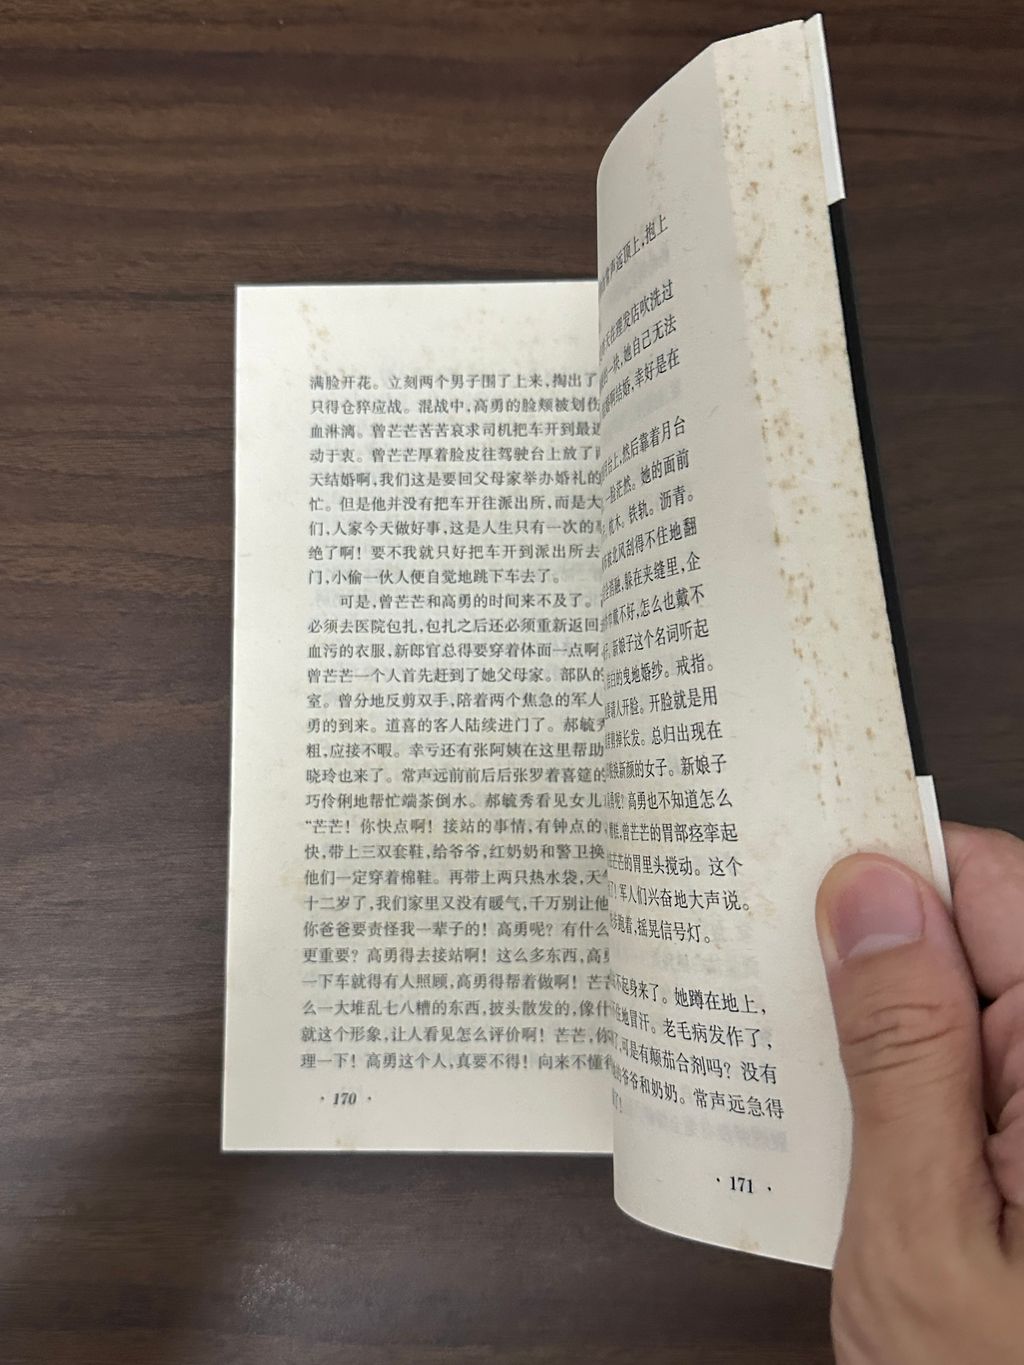 满脸开花。立刻两个男子围了上来,掏出了
只得仓猝应战。混战中,高勇的脸颊被划伤
血淋漓。曾芒芒苦苦哀求司机把车开到最近
动于衷。曾芒芒厚着脸皮往驾驶台上放了
天结婚啊,我们这是要回父母家举办婚礼的
忙。但是他并没有把车开往派出所,而是大
们,人家今天做好事,这是人生只有一次的
绝了啊!要不我就只好把车开到派出所去
门,小偷一伙人便自觉地跳下车去了。
可是,曾芒芒和高勇的时间来不及了。
必须去医院包扎,包扎之后还必须重新返回
血污的衣服,新郎官总得要穿着体面一点啊
曾芒芒一个人首先赶到了她父母家。部队的
室。曾分地反剪双手,陪着两个焦急的军人
勇的到来。道喜的客人陆续进门了。郝毓秀
粗,应接不暇。幸亏还有张阿姨在这里帮助
晓玲也来了。常声远前前后后张罗着喜筵的
巧伶俐地帮忙端茶倒水。郝毓秀看见女儿
“芒芒!你快点啊!接站的事情,有钟点的
快,带上三双套鞋,给爷爷,红奶奶和警卫换
他们一定穿着棉鞋。再带上两只热水袋,天
十二岁了,我们家里又没有暖气,千万别让他
你爸爸要责怪我一辈子的!高勇呢?有什么
更重要?高勇得去接站啊!这么多东西,高
一下车就得有人照顾,高勇得帮着做啊!芒
么一大堆乱七八糟的东西,披头散发的,像什
就这个形象,让人看见怎么评价啊!芒芒,你
理一下!高勇这个人,真要不得!向来不懂得
· 170 ·
常声远顶上,抱上
天在理发店吹洗过
一块,她自己无法
结婚,幸好是在
台上,然后靠着月台
一脸茫然。她的面前
枕木。铁轨。沥青。
被北风刮得不住地翻
消融,躲在夹缝里,企
戴不好,怎么也戴不
新娘子这个名词听起
白的曳地婚纱。戒指。
请人开脸。开脸就是用
掉长发。总归出现在
换新颜的女子。新娘子
呢?高勇也不知道怎么
曾芒芒的胃部痉挛起
芒芒的胃里头搅动。这个
!军人们兴奋地大声说。
跑着,摇晃信号灯。
不起身来了。她蹲在地上,
住地冒汗。老毛病发作了,
,可是有颠茄合剂吗?没有
的爷爷和奶奶。常声远急得
!
· 171 ·